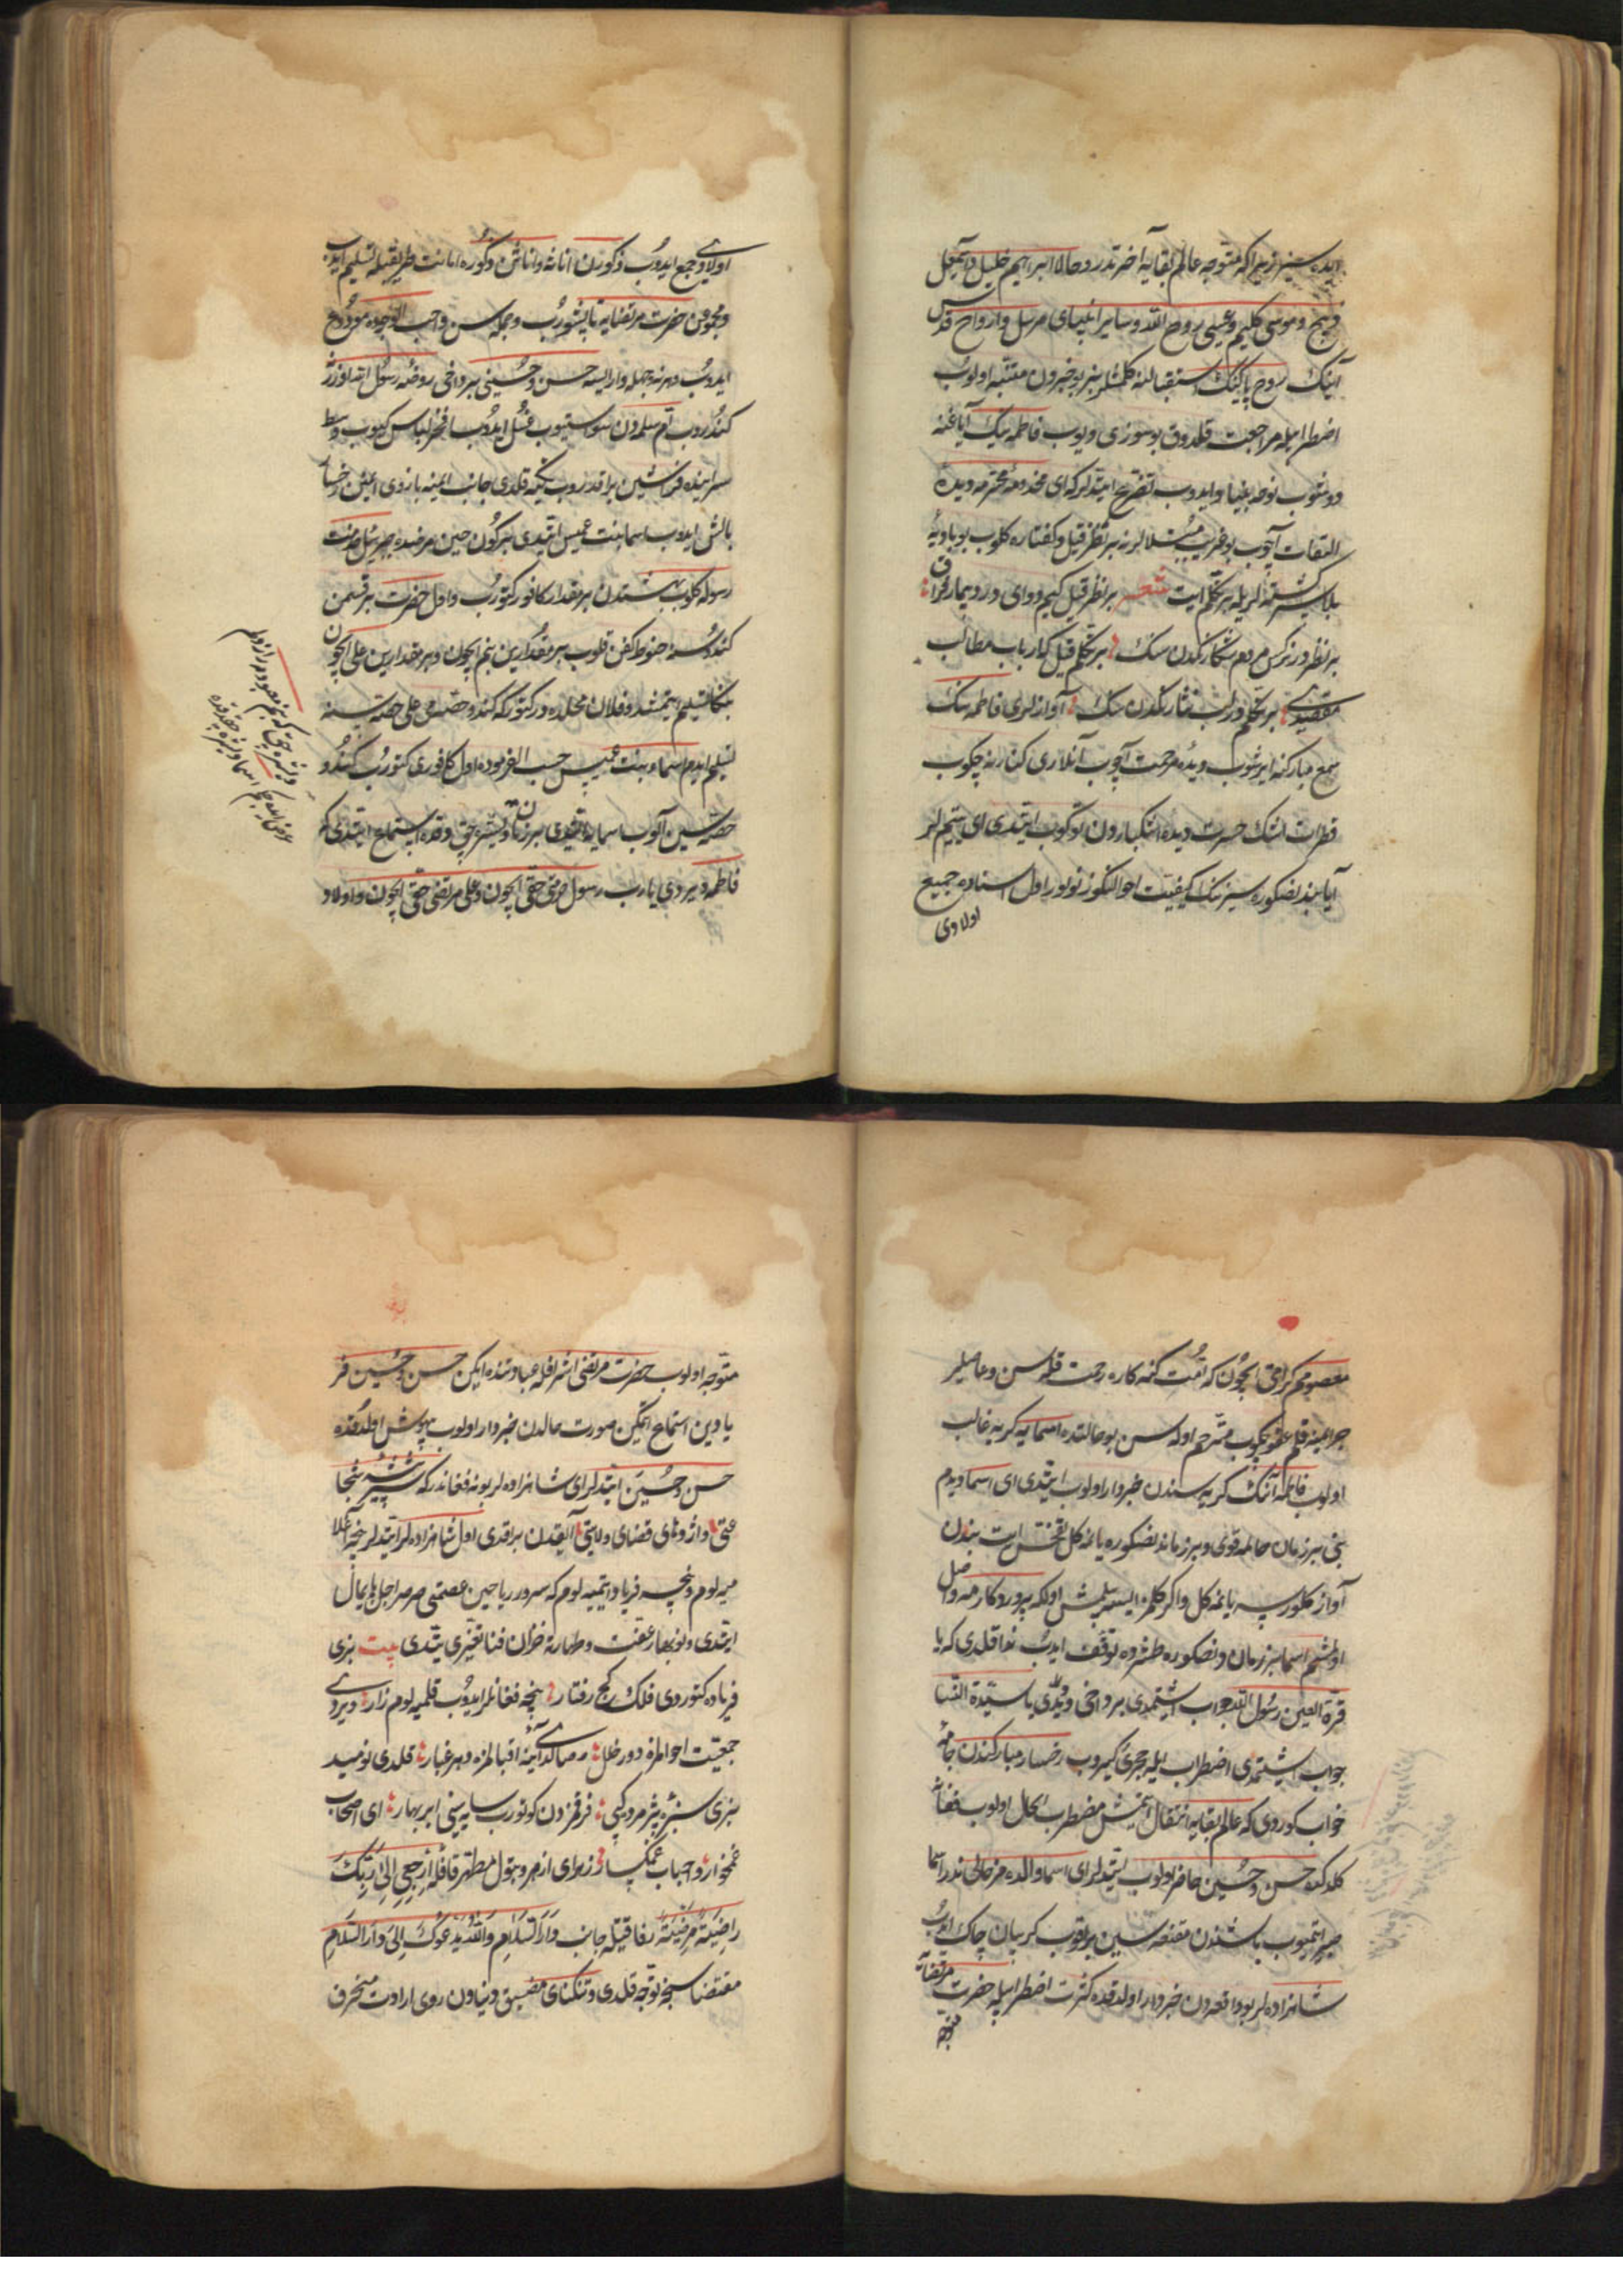 ایده سیز زیرا که متوجه عالم بقایه آخرتدر و حالا ابراهیم خلیل و اسمعیل
ذبیح و موسی کلیم و عیسی روح الله و سایر انبیای مرسل و ارواح قدس
آنیک روح پاکینک استقبالنه کلمشلر بو خبردن متنبه اولوب
اضطرابله مراجعت قلدوق بو سوزی دیوب فاطمه نیک آیاغنه
دوشوب نوحه بنیاد ایدوب تضرع ایتدیلر که ای مخدومهٔ محترمه دیدهٔ
التفات آچوب بو غریب مبتلالرنه بر نظر قیل و گفتاره کلوب بو بادیهٔ
بلا سرگشته لریله بر تکلم ایت شعر بر نظر قیل کیم دوای درد بیمار فراق
بر نظردر نرگس مردم شکارکدن سنک بر تکلم قیل که ارباب مطالب
مقصدی بر تکلمدر لب نثارکدن سنک آوازلری فاطمه نیک
سمع مبارکنه ایریشوب دیدهٔ مرحمت آچوب آنلاری کنارنه چکوب
قطرات اشک حسرت دیدهٔ اشکباردن توکوب ایتدی ای یتیملر
آیا بندنصکره سیزنک کیفیت احوالنگوز نولور اول اثناده جمیع
اولادی
اولادی جمع ایدوب ذکورن اناثه و اناثن ذکوره امانت طریقیله تسلیم ایدوب
و مجموعن حضرت مرتضایه تاپشوروب و جمله سن واجب الوجوده مودوع
ایدوب و هر نه جمله وار ایسه حسن و حسینی بر داخی روضهٔ رسول الله اوزره
کندروب ام سلمه دن سو ایستیوب غسل ایدوب افخر لباس کیوب وسط
سراینده فراشین براقدروب تکیه قلدی جانب ایمنه بازوی ایمنن رخسا
بالش ایدوب اسما بنت عمیس ایتدی بر کون حین مرضده جبرئیل حضرت
رسوله کلوب بهشتدن بر مقدار کافور کتوروب و اول حضرت بر قسمن
کندوسنه حنوط کفن قلوب بر مقدارین بنم ایچون و بر مقدارین علی ایچون
بنکا تسلیم ایتمشدر فلان محلده در کتور که کندو حصه می علی حصه سینه
تسلیم ایدم اسماء بنت عمیس حسب الفرموده اول کافوری کتوروب کندو
حصه سین آلوب اسمایه ایتدی بر زمان دیشره چق و قده استماع ایتدی که
فاطمه دیردی یارب رسول حرمتی حقی ایچون و علی مرتضی حقی ایچون و اولاد
معصومم کرامتی ایچون که امت کنه کاره رحمت قله سن و عاصیلر
جرایمینه قلم عفو چکوب مترحم اوله سن بو حالتده اسمایه کریه غالب
اولوب فاطمه آننک کریه سندن خبردار اولوب ایتدی ای اسما دیدم
بنی بر زمان حالمه قوی و بر زماندنصکره یانمه کل تفحص ایت بندن
آواز کلورسه یانمه کل واکر کلمز ایسه بیلمش اول که پروردکارمه واصل
اولمشم اسما بر زماندنصکره طشره ده توقف ایدوب ندا قلدی که یا
قرة العین رسول الله جواب ایشتمدی بر داخی دیدی یا سیدة النسا
جواب ایشتمدی اضطراب ایله حجره یه کیروب رخسار مبارکندن جامهٔ
خواب کوردی که عالم بقایه انتقال ایتمش مضطرب الحال اولوب فغانه
کلدکده حسن و حسین حاضر اولوب ایتدیلر ای اسما والده مز حالی ندر اسما
صبر ایتمیوب باشندن مقنعه سین براقوب کریبان چاک ایدوب
شاهزاده لر بو واقعه دن خبردار اولدقده کثرت اضطرابیله حضرت مرتضایه
متوجه
متوجه اولوب حضرت مرتضی اشراقله عبادتنده ایکن حسن و حسین فر
یادین استماع ایتکین صورت حالدن خبردار اولوب بیهوش اولدقده
حسن و حسین ایتدیلر ای شاهزاده لر بو نه فغاندر که
آیلقدن براقدی اول شاهزاده لر ایتدیلر نیجه آغلا
میه لوم و نیجه فریاد ایتمیه لوم که سرور ریاحین عصمتی صرصر اجل پایمال
ایتدی و نوبهار عفت و طهارته خزان فنا تغییری یتدی بیت بزی
فریاده کتوردی فلک کج رفتار نیجه فغانلر ایدوب قلمیه لوم زار ویردی
جمعیت احوالمزه دور خلل صالدی آینهٔ اقبالمزه دهر غبار قلدی نومید
بزی سبزهٔ پژمرده کبی فرقمزدن کوتوروب سایه سینی ابر بهار ای اصحاب
غمخوار و احباب غمکسار زهرای ازهر و بتول مطهر قافلهٔ اِرْجِعِي اِلى رَبِّكِ
رَاضِيَةً مَرْضِيَّةً رفاقتیله جانب دَارَ السَّلام وَاللّهُ يَدْعُوكَ اِلى دَارِ السَّلَامِ
مقتضاسنجه توجه قلدی و تنگنای مضیق دنیادن روی ارادت منحرف